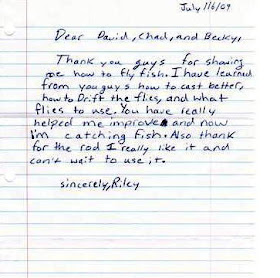 July 16/09
Dear David, Chad, and Becky,
Thank you guys for showing
me how to fly fish. I have learned
from you guys how to cast better,
how to Drift the flies, and what
flies to use. You have really
helped me improve and now
I'm catching fish. Also thank
for the rod I really like it and
can't wait to use it.
sincerely, Riley